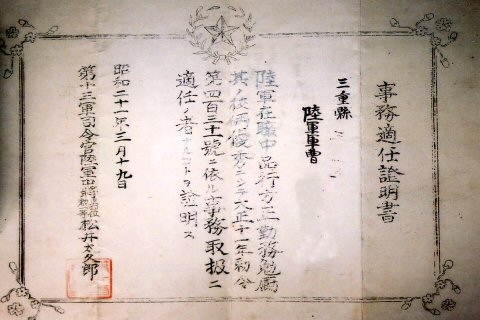 事務適任證明書
三重縣
陸軍軍曹
陸軍在職中品行方正勤務勉勵
其ノ伎倆優秀ニシテ大正十一年勅令
第四百三十一號ニ依ル事務取扱ニ
適任ノ者ナルコトヲ證明ス
昭和二十一年三月十九日
第十三軍司令官陸軍中將 松井太久郎